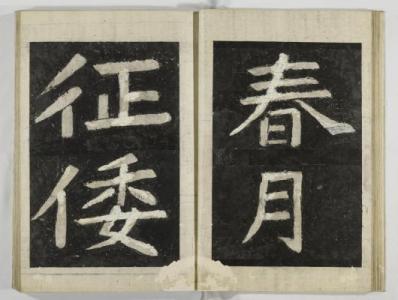 春月
征倭